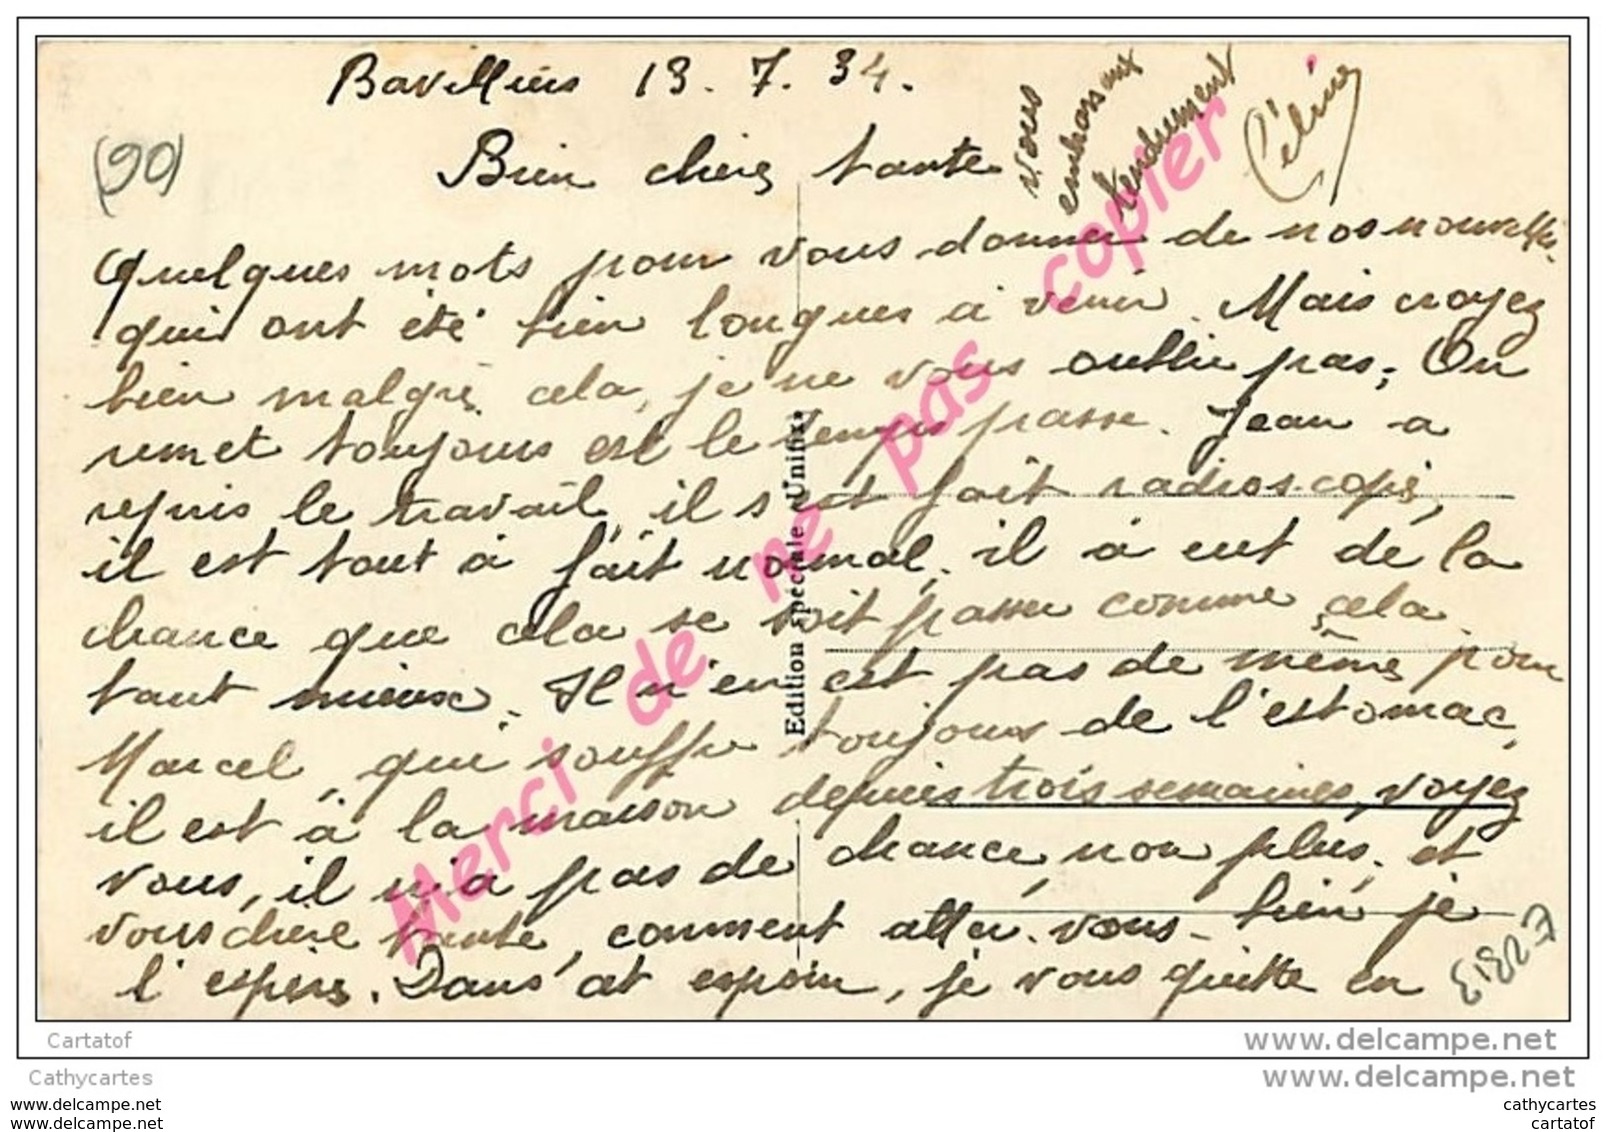 Bavilliers 13.7.34.
(90)
Bien chère tante
Quelques mots pour vous donner de nos nouvelles
qui ont été bien longues à venir. Mais croyez
bien malgré cela, je ne vous oublie pas; On
remet toujours et le temps passe. Jean a
repris le travail, il s'est fait radioscopié,
il est tout à fait normal, il à eut de la
chance que cela se soit passer comme cela.
tant mieux. Il n'en est pas de même pour
Marcel, qui souffre toujours de l'estomac,
il est à la maison depuis trois semaines, voyez
vous, il n'a pas de chance, non plus, et
vous chère tante, comment aller-vous- bien je
l'espère. Dans c'et espoir, je vous quitte en
vous
embrassant
tendrement
Céline
E1827
Edition spéciale "Unifix"
Merci de ne pas copier
Cartatof
Cathycartes
www.delcampe.net
www.delcampe.net
www.delcampe.com
www.delcampe.com
cathycartes
cartatof